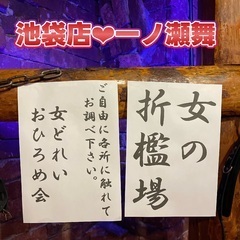 池袋店❤一ノ瀬舞
女の
折檻場
ご自由に各所に触れて
お調べ下さい。
女どれい
おひろめ会